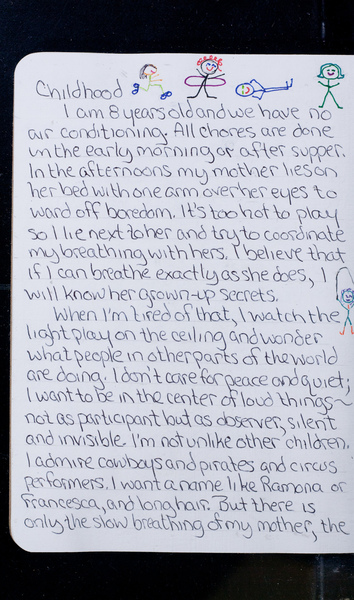 Childhood
I am 8 years old and we have no
air conditioning. All chores are done
in the early morning or after supper.
In the afternoons my mother lies on
her bed with one arm over her eyes to
ward off boredom. It's too hot to play
so I lie next to her and try to coordinate
my breathing with hers. I believe that
if I can breathe exactly as she does, I
will know her grown-up secrets.
When I'm tired of that, I watch the
light play on the ceiling and wonder
what people in other parts of the world
are doing. I don't care for peace and quiet;
I want to be in the center of loud things~
not as participant but as observer, silent
and invisible. I'm not unlike other children.
I admire cowboys and pirates and circus
performers. I want a name like Ramona or
Francesca, and long hair. But there is
only the slow breathing of my mother, the